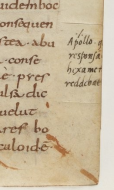 uidemboc
onsequen
stea abu
conse
e pres
ulsa die
uelut
ares bo
culoide
Apollo q
responsa
hexamet
reddebat